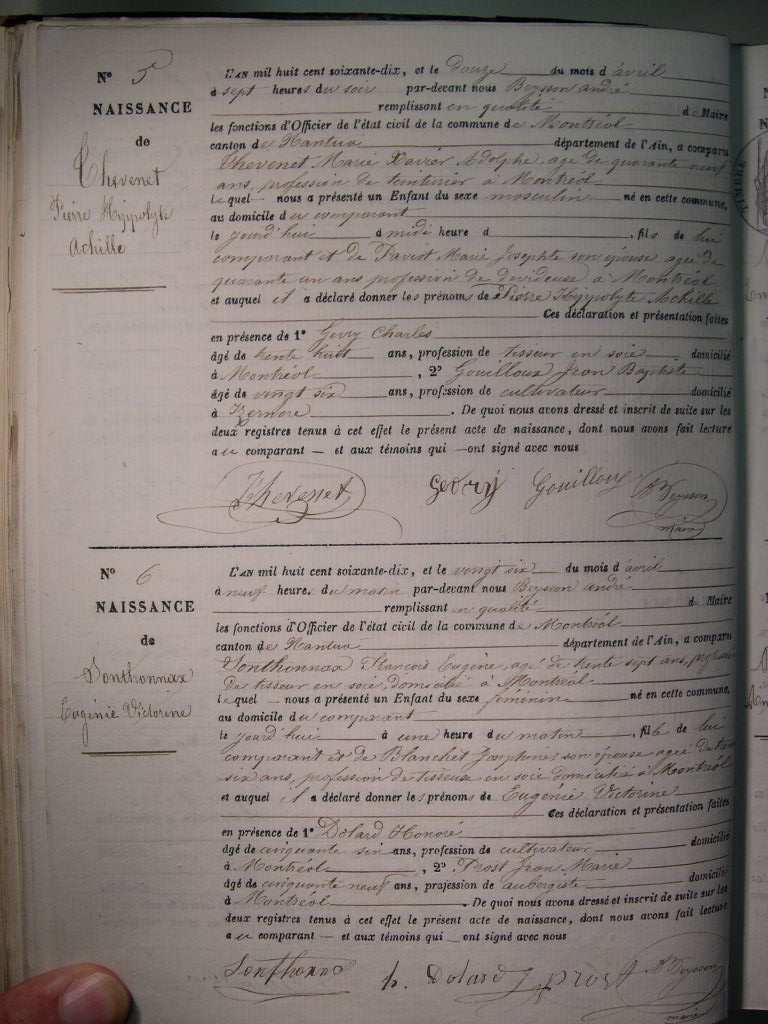 N° 5
NAISSANCE
de
Thevenet
Pierre Hyppolyte
Achille
L'AN mil huit cent soixante-dix, et le douze du mois d'avril
à sept heures du soir par-devant nous Beysson andré
remplissant en qualité de Maire
les fonctions d'Officier de l'état civil de la commune de Montréal
canton de Nantua département de l'Ain, a comparu
Thevenet Marie Xavier Adolphe, age de quarante neuf
ans, profession de teinturier à Montréal
lequel nous a présenté un Enfant du sexe masculin né en cette commune,
au domicile du comparant
le jourd'hui à midi heure d , fils de lui
comparant et de Marie Josephte son épouse agée de
quarante un ans profession de devideuse à Montréal
et auquel il a déclaré donner les prénoms de Pierre Hyppolyte Achille
Ces déclaration et présentation faites
en présence de 1° Gevry Charles
âgé de trente huit ans, profession de tisseur en soie domicilié
à Montréal , 2° Gouilloux Jean Baptiste
âgé de vingt six ans, profession de cultivateur domicilié
à Izernore . De quoi nous avons dressé et inscrit de suite sur les
deux registres tenus à cet effet le présent acte de naissance, dont nous avons fait lecture
au comparant — et aux témoins qui — ont signé avec nous
Thevenet Gevry Gouilloux Beysson
maire
N° 6
NAISSANCE
de
Sonthonnax
Eugénie Victorine
L'AN mil huit cent soixante-dix, et le vingt six du mois d'avril
à neuf heures du matin par-devant nous Beysson andré
remplissant en qualité de Maire
les fonctions d'Officier de l'état civil de la commune de Montréal
canton de Nantua département de l'Ain, a comparu
Sonthonnax François Eugène, agé de trente sept ans, profession
de tisseur en soie, domicilié à Montréal
lequel nous a présenté un Enfant du sexe féminin né en cette commune,
au domicile du comparant
le jourd'hui à une heure du matin , fille de lui
comparant et de Blanchet Josephine son épouse agée de
six ans, profession de tisseuse en soie domiciliée à Montréal
et auquel il a déclaré donner les prénoms de Eugénie Victorine
Ces déclaration et présentation faites
en présence de 1° Dolard Honoré
âgé de cinquante six ans, profession de cultivateur domicilié
à Montréal , 2° Prost Jean Marie
âgé de cinquante neuf ans, profession de aubergiste domicilié
à Montréal . De quoi nous avons dressé et inscrit de suite sur les
deux registres tenus à cet effet le présent acte de naissance, dont nous avons fait lecture
au comparant — et aux témoins qui ont signé avec nous
Sonthonnax h. Dolard J prost Beysson
maire